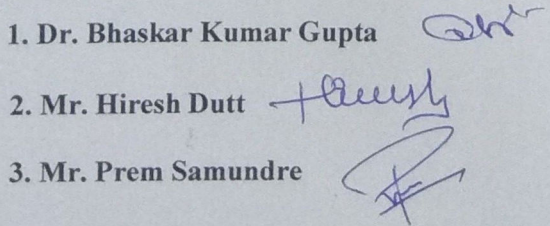 1. Dr. Bhaskar Kumar Gupta
2. Mr. Hiresh Dutt
3. Mr. Prem Samundre